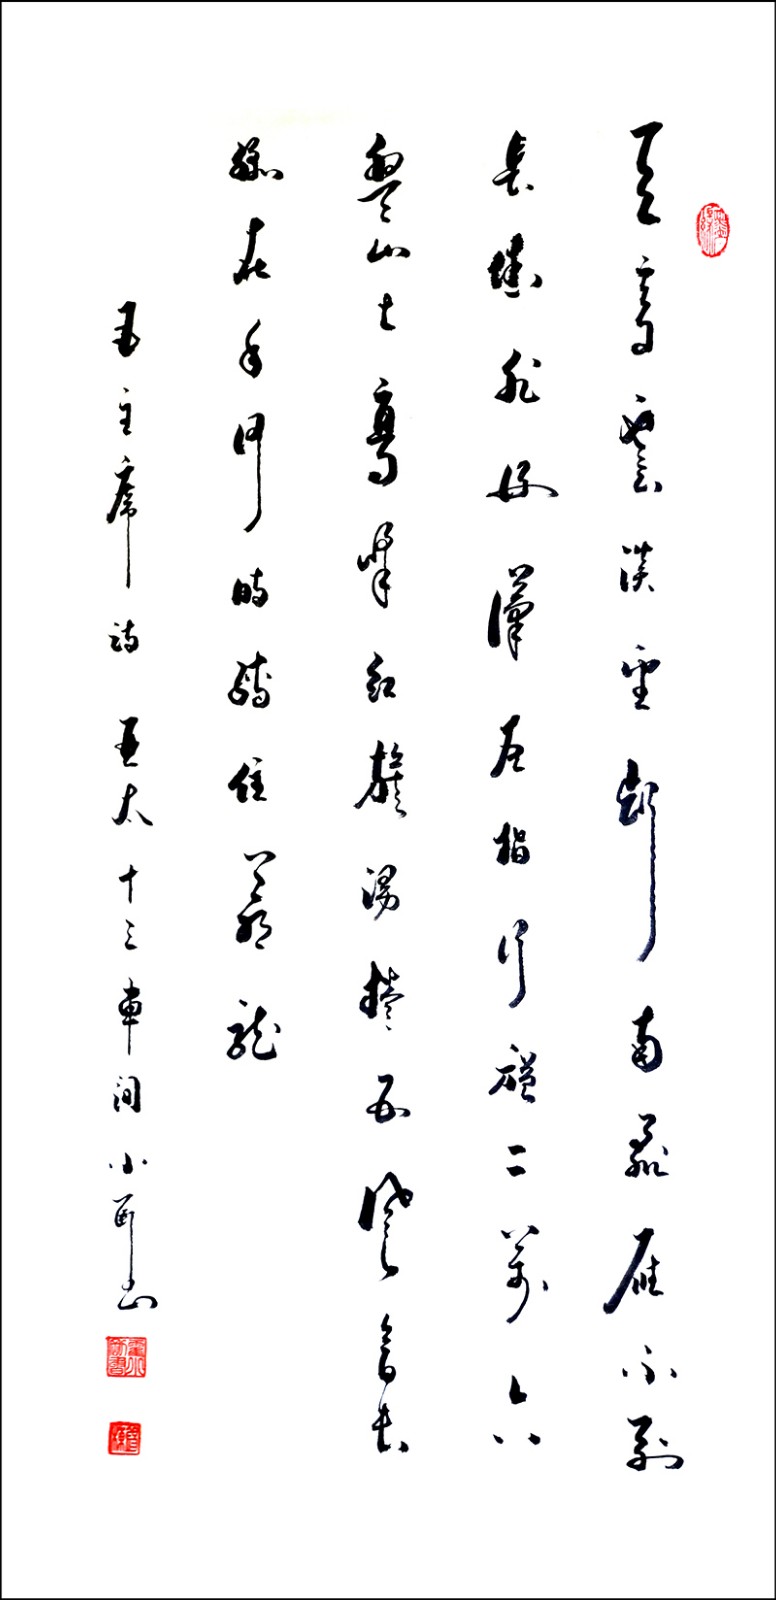 天高雲淡望斷南飛雁不到
長城非好漢屈指行程二萬六
盤山上高峰紅旗漫捲西風今日長
纓在手何時縛住蒼龍
毛主席詩 亞太十三車間 小山